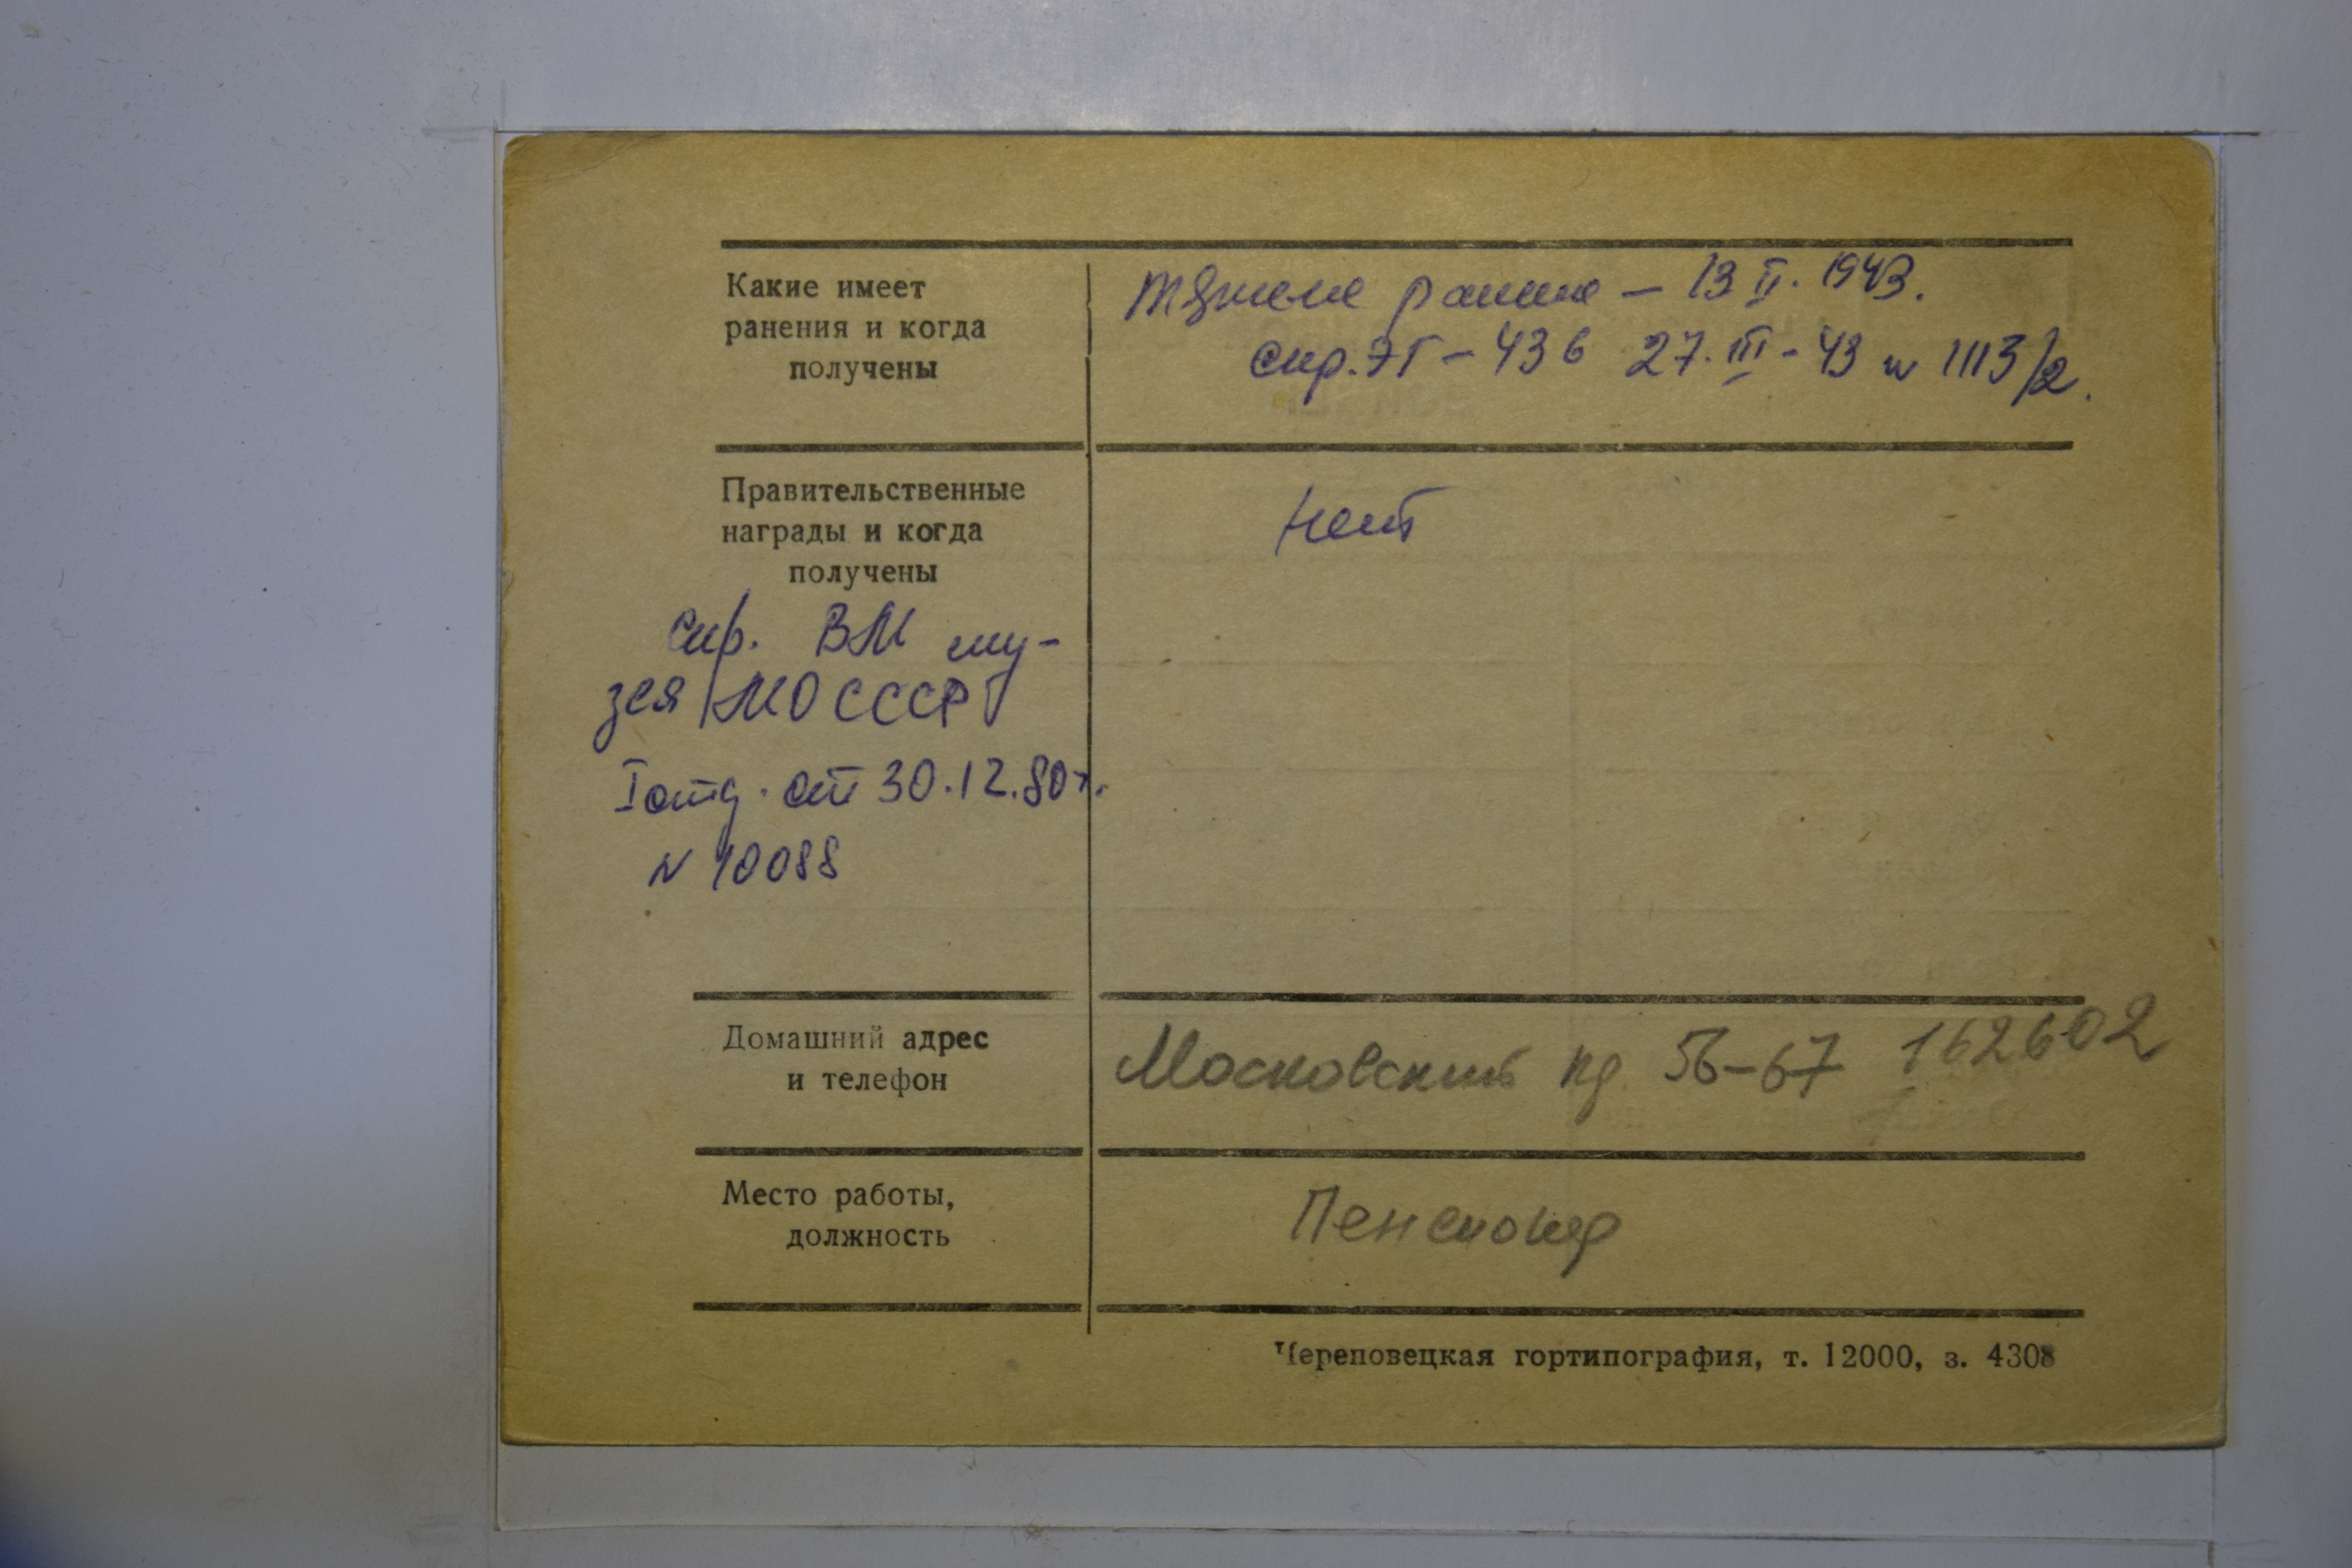 Какие имеет
ранения и когда
получены
тяжелое ранение – 13 II. 1943.
спр. ЭГ – 436 27. III – 43 N 1113/2.
Правительственные
награды и когда
получены
нет
спр. ВМ му-
зея МО СССР
I отд. от 30.12.80 г.
N 10088
Домашний адрес
и телефон
Московский пр 56–67 162602
Место работы,
должность
Пенсионер
Череповецкая гортипография, т. 12000, з. 4308